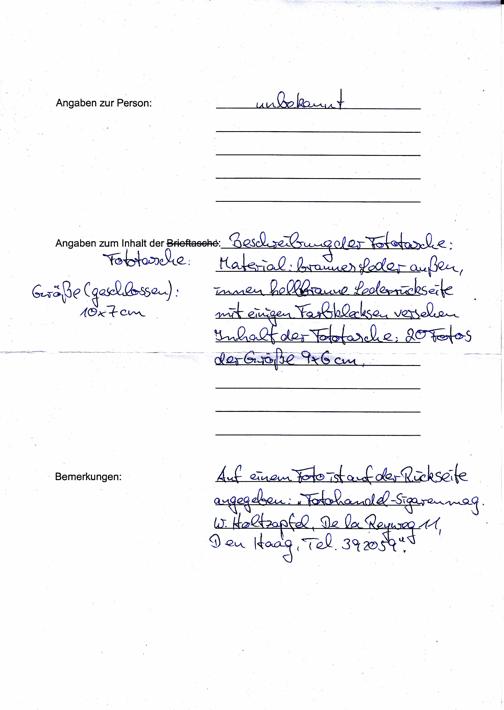 Angaben zur Person: unbekannt
Angaben zum Inhalt der Brieftasche: Beschreibung der Fototasche:
Fototasche: Material: braunes Leder außen,
Größe (geschlossen): innen hellbraune Lederrückseite
10x7cm mit einigen Farbklecksen versehen
Inhalt der Fototasche: 20 Fotos
der Größe 9x6 cm.
Bemerkungen: Auf einem Foto ist auf der Rückseite
angegeben: „Fotohandel-Sigarenmag.
W. Holtzapfel, De la Reyweg 11,
Den Haag, Tel. 392059."